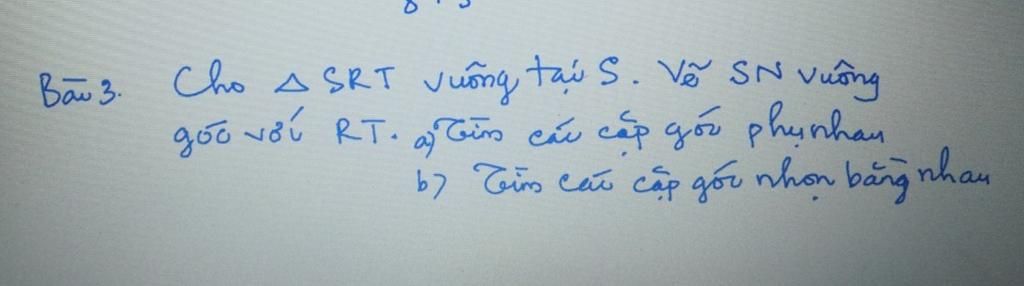 Bài 3. Cho Δ SRT vuông tại S. Vẽ SN vuông
góc với RT. a) Tìm các cặp góc phụ nhau
b) Tìm các cặp góc nhọn bằng nhau